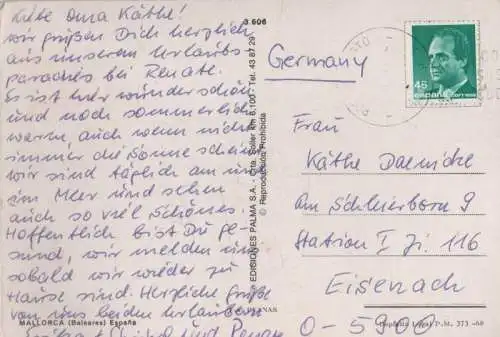 Liebe Oma Käthe!
wir grüßen Dich herzlich
aus unserem Urlaubs-
paradies bei Renate.
Es ist hier wunderschön
und noch sommerlich
warm, auch wenn nicht
immer die Sonne scheint
wir sind täglich am und
im Meer und sehen
auch so viel Schönes.
Hoffentlich bist Du ge-
sund, wir melden uns
sobald wir wieder zu
Hause sind. Herzliche Grüße
von uns beiden Urlaubern
und
MALLORCA (Baleares) España
3.606
EDICIONES PALMA S.A. - Ctra. Sóller Km 6,100 - Tel. 43 87 29
© Reproducción Prohibida
Germany
45
españa
CORREOS
Frau
Käthe Daenicke
Am Schleierborn 9
Station I Zi. 116
Eisenach
O-5900
Depósito Legal P.M. 373-60